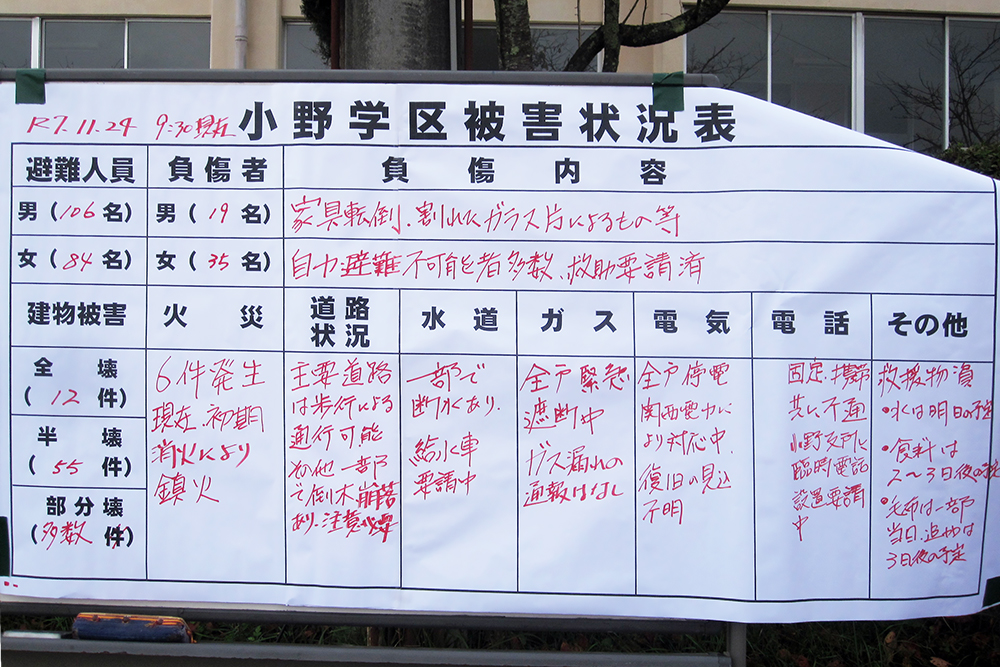 R7.11.24 9:30現在 小野学区被害状況表
避難人員 負傷者 負傷内容
男(106名) 男(19名) 家具転倒、割れたガラス片によるもの等
女(84名) 女(35名) 自力避難不可能な者多数、救助要請済
建物被害 火災 道路状況 水道 ガス 電気 電話 その他
全壊
(12件)
半壊
(55件)
部分壊
(多数件)
6件発生
現在、初期
消火により
鎮火
主要道路
は歩行による
通行可能
その他一部
で倒木崩落
あり、注意必要
一部で
断水あり。
給水車
要請中
全戸緊急
遮断中
ガス漏れの
通報はなし
全戸停電
関西電力に
より対応中。
復旧の見込
不明
固定、携帯
共に不通
小野支所に
臨時電話
設置要請
中
救援物資
•水は明日の予定
•食料は
2〜3日後の予定
•毛布は一部
当日、追加は
3日後の予定